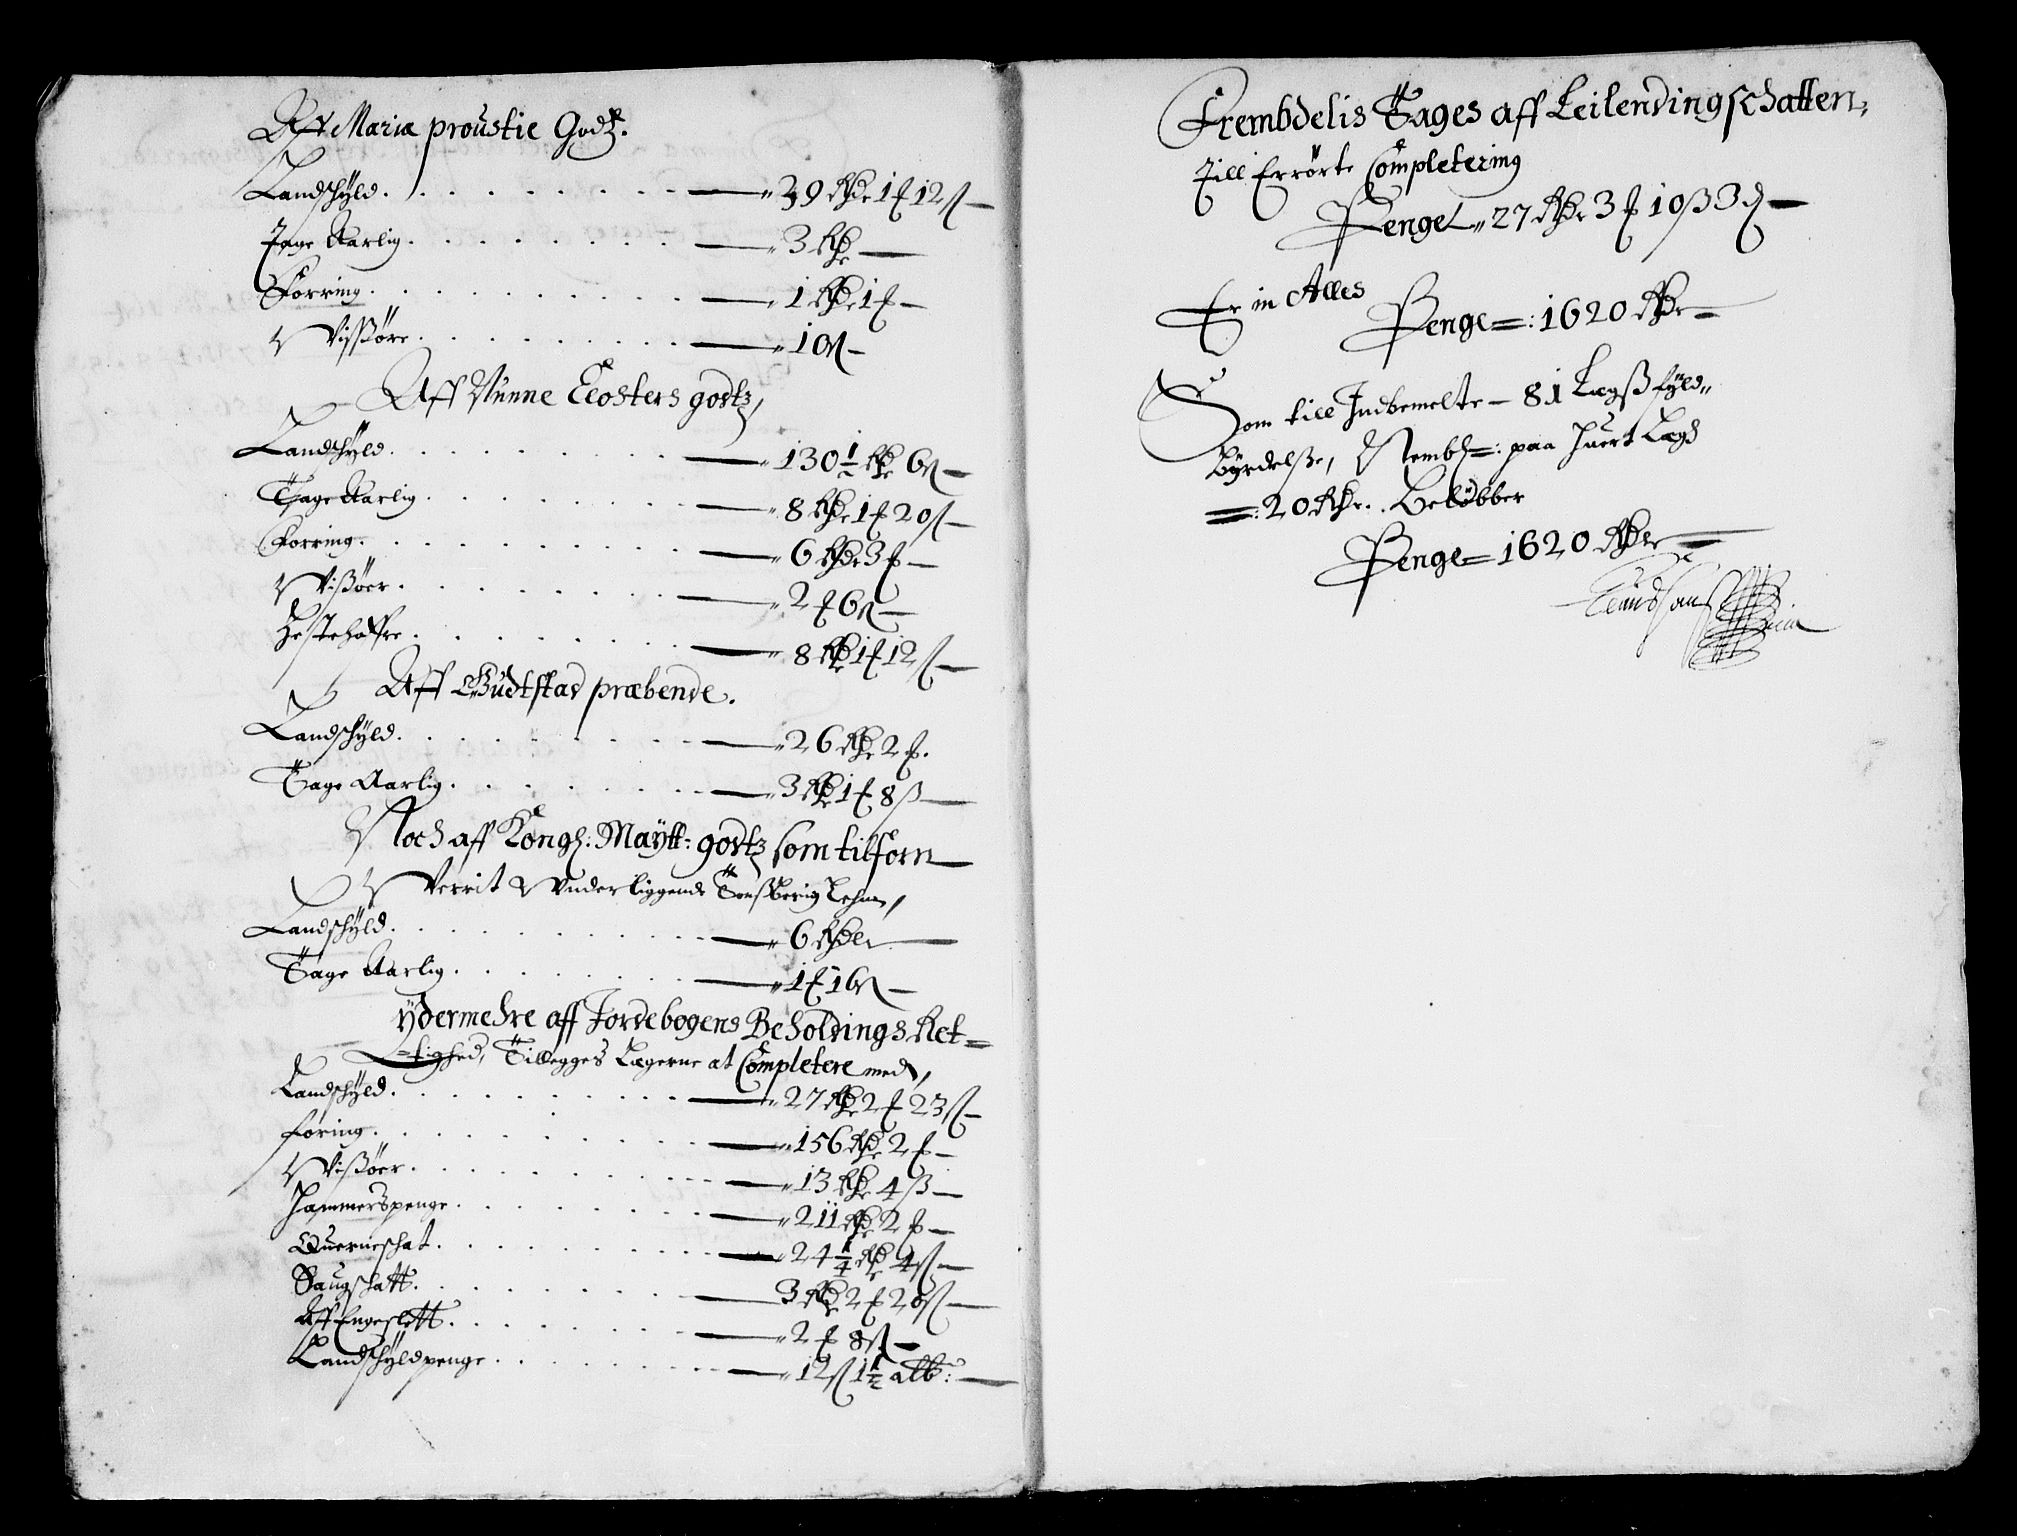 Aff Mariæ proustie Godtz.
Landschÿld . . . . . . . . . 39 Rdr 1 ₣ 12 ß
Tage Aarlig . . . . . . . . 3 Rdr
Forring . . . . . . . . . . 1 Rdr 1 ₣
Vißøre . . . . . . . . . . 10 ß
Aff Nunne Closters godtz,
Landschÿld . . . . . . . . 130 1/2 Rdr 6 ß
Tage Aarlig . . . . . . . . 8 Rdr 1 ₣ 20 ß
Forring . . . . . . . . . . 6 Rdr 3 ₣
Vißøer . . . . . . . . . . 2 ₣ 6 ß
Hestehaffre . . . . . . . . 8 Rdr 1 ₣ 12 ß
Aff Gudtstad præbende.
Landschÿld . . . . . . . . 26 Rdr 2 ₣.
Tage Aarlig . . . . . . . . 3 Rdr 1 ₣ 8 ß
Noch aff Kongl: Maÿtt: godtz som tilforn
Verrit Vnderliggende Tonßberg Lehn,
Landschÿld . . . . . . . . 6 Rdlr
Tage Aarlig . . . . . . . . 1 ₣ 16 ß
ÿdermehre aff Jordebogens Beholdings Ret=
=tighed, Tillegges Lægerne at Completere med,
Landschÿld . . . . . . . . 27 Rdr 2 ₣ 23 ß
Føring . . . . . . . . . . 156 Rdr 2 ₣
Vißøer . . . . . . . . . . 13 Rdr 4 ß
Hammerspenge . . . . . . . 211 Rdr 2 ₣
Querneschat . . . . . . . . 24 1/4 Rdr 4 ß
Saugschatt . . . . . . . . 3 Rdr 2 ₣ 20 ß
Aff Engeslett . . . . . . . 2 ₣ 8 ß
Landschÿldpenge . . . . . . 12 ß 1 1/2 alb:
Frembdelis Tages aff Leilendingschatten,
Till Errørte Completering
Penge 27 Rdr 3 ₣ 10 ß 3 ₰
Er in Alles
Penge =: 1620 Rdr
Som till Indbemelte 81 Lægß fÿld=
Bÿrdelße, Nembl=: paa Huert Lægd
=: 20 Rdr. Beløbber
Penge = 1620 Rdlr